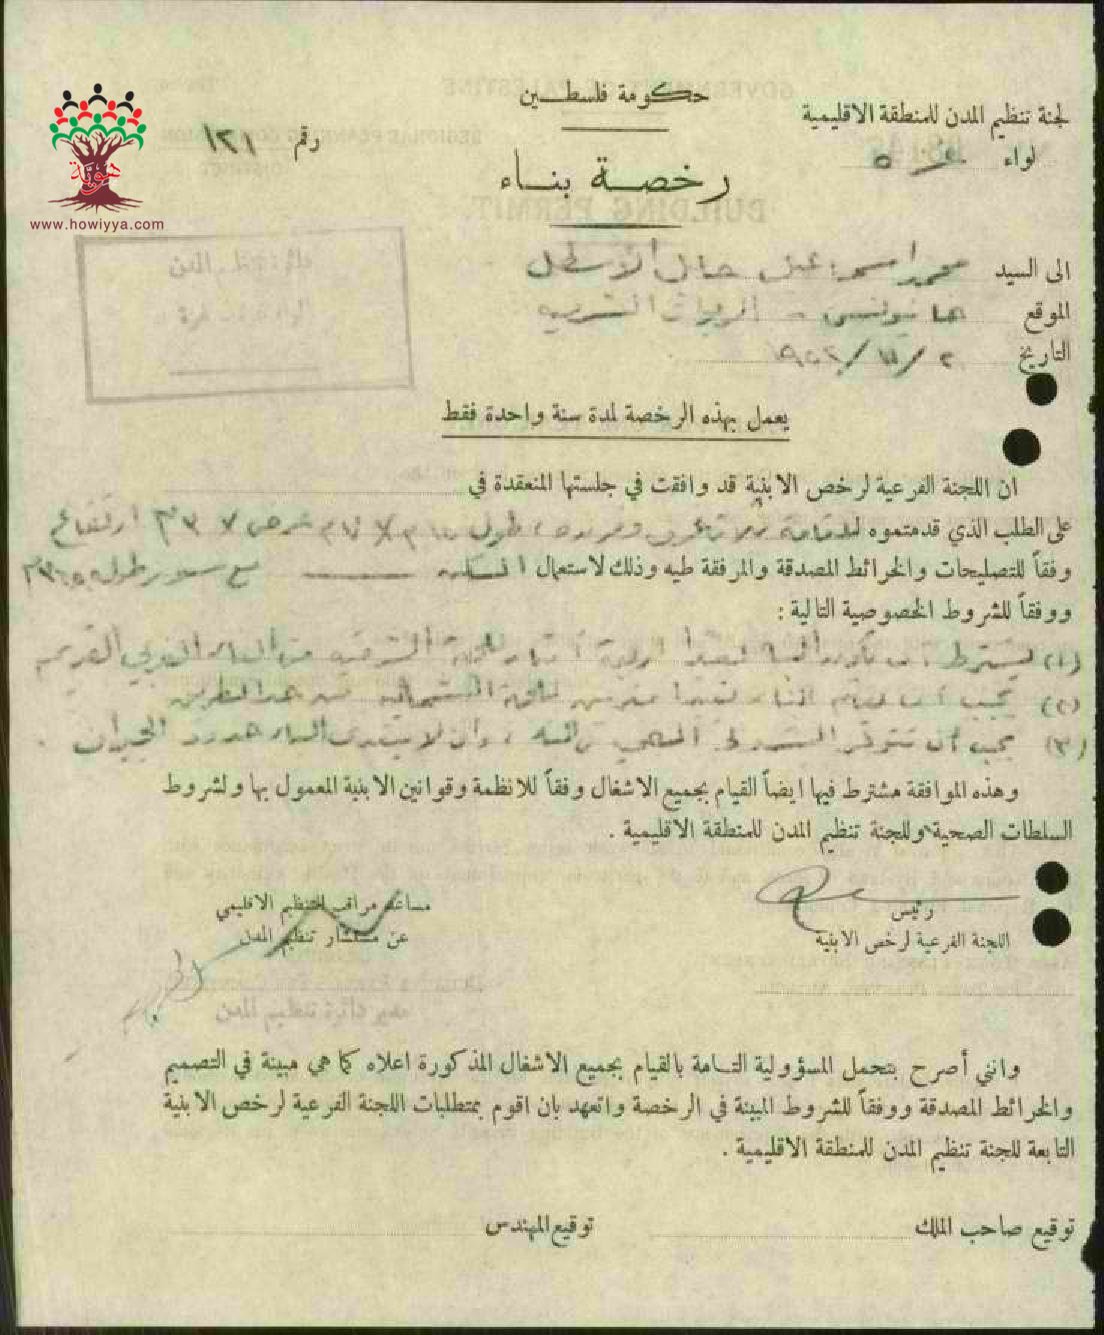 حكومة فلسطين
لجنة تنظيم المدن للمنطقة الاقليمية
لواء غزه
رقم ١٢١
رخصة بناء
هوية
www.howiyya.com
دائرة تنظيم المدن
لواء غزة
الى السيد محمد اسماعيل الأسطل
الموقع خانيونس -
التاريخ ٢ / ١١ / ١٩٥٢
يعمل بهذه الرخصة لمدة سنة واحدة فقط
ان اللجنة الفرعية لرخص الابنية قد وافقت في جلستها المنعقدة في
على الطلب الذي قدمتموه لاقامة ثلاثة غرف وفرنده ، طول عرض ارتفاع
وفقاً للتصليحات والخرائط المصدقة والمرفقة طيه وذلك لاستعمال السكن مع سور بطول
ووفقاً للشروط الخصوصية التالية :
(١) يشترط أن يكون البناء أمتار للجهة الشرقية من البناء الغربي القديم
(٢) يجب أن يقام البناء لجهة الشمالية
(٣) يجب أن تتوفر الشروط الصحية ، وأن لا يتعدى البناء حدود الجيران .
وهذه الموافقة مشترط فيها ايضاً القيام بجميع الاشغال وفقاً للانظمة وقوانين الابنية المعمول بها ولشروط
السلطات الصحية وللجنة تنظيم المدن للمنطقة الاقليمية .
رئيس
اللجنة الفرعية لرخص الابنية
مساعد مراقب التنظيم الاقليمي
عن مستشار تنظيم المدن
مدير دائرة تنظيم المدن
وانني أصرح بتحمل المسؤولية التامة بالقيام بجميع الاشغال المذكورة اعلاه كما هي مبينة في التصميم
والخرائط المصدقة ووفقاً للشروط المبينة في الرخصة واتعهد بان اقوم بمتطلبات اللجنة الفرعية لرخص الابنية
التابعة للجنة تنظيم المدن للمنطقة الاقليمية .
توقيع صاحب الملك
توقيع المهندس